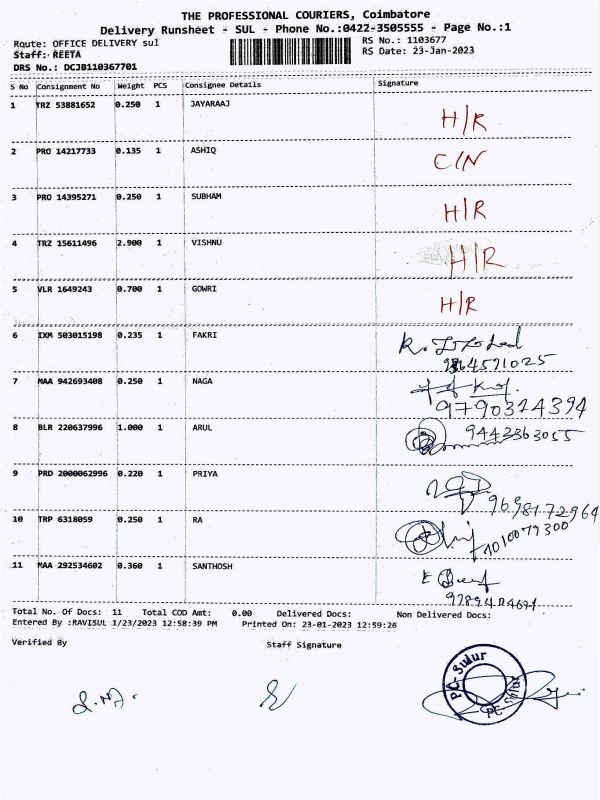 THE PROFESSIONAL COURIERS, Coimbatore
Delivery Runsheet - SUL - Phone No.:0422-3505555 - Page No.:1
Route: OFFICE DELIVERY sul RS No.: 1103677
Staff: REETA RS Date: 23-Jan-2023
DRS No.: DCJB110367701
S No Consignment No Weight PCS Consignee Details Signature
1 TRZ 53881652 0.250 1 JAYARAAJ H/R
2 PRO 14217733 0.135 1 ASHIQ C/N
3 PRO 14395271 0.250 1 SUBHAM H/R
4 TRZ 15611496 2.900 1 VISHNU H/R
5 VLR 1649243 0.700 1 GOWRI H/R
6 IXM 503015198 0.235 1 FAKRI
7 MAA 942693408 0.250 1 NAGA
9790314394
8 BLR 220637996 1.000 1 ARUL 9442363055
9 PRD 2000062996 0.220 1 PRIYA
9698172964
10 TRP 6318059 0.250 1 RA
11 MAA 292534602 0.360 1 SANTHOSH
Total No. Of Docs: 11 Total COD Amt: 0.00 Delivered Docs: Non Delivered Docs:
Entered By :RAVISUL 1/23/2023 12:58:39 PM Printed On: 23-01-2023 12:59:26
Verified By Staff Signature
PC-Sulur